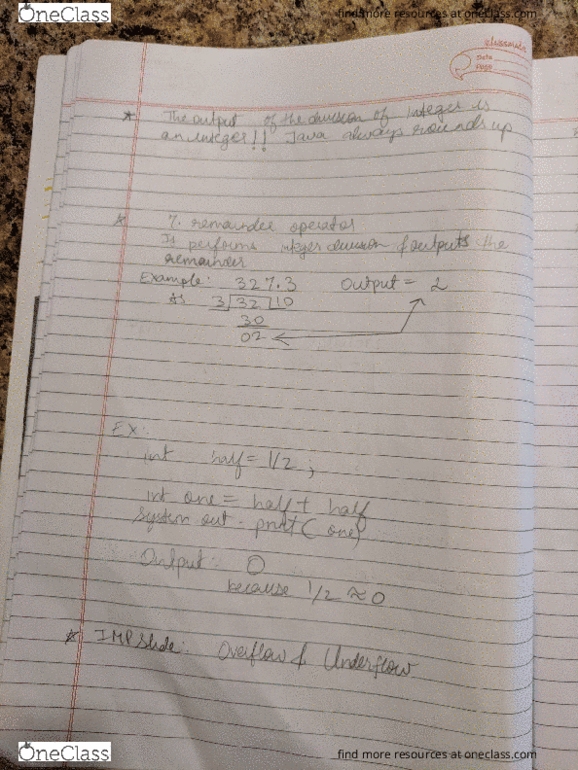 OneClass
find more resources at oneclass.com
classmate
Date
Page
* The output of the division of integer is
an integer!! Java always rounds up
* % remainder operator
It performs integer division & outputs the
remainder
Example: 32%3 Output = 2
3 32 10
30
02
EX:
int half = 1/2 ;
int one = half + half
System out. print ( one)
Output: 0
because 1/2 ≈ 0
* IMP Slide: Overflow & Underflow
OneClass
find more resources at oneclass.com